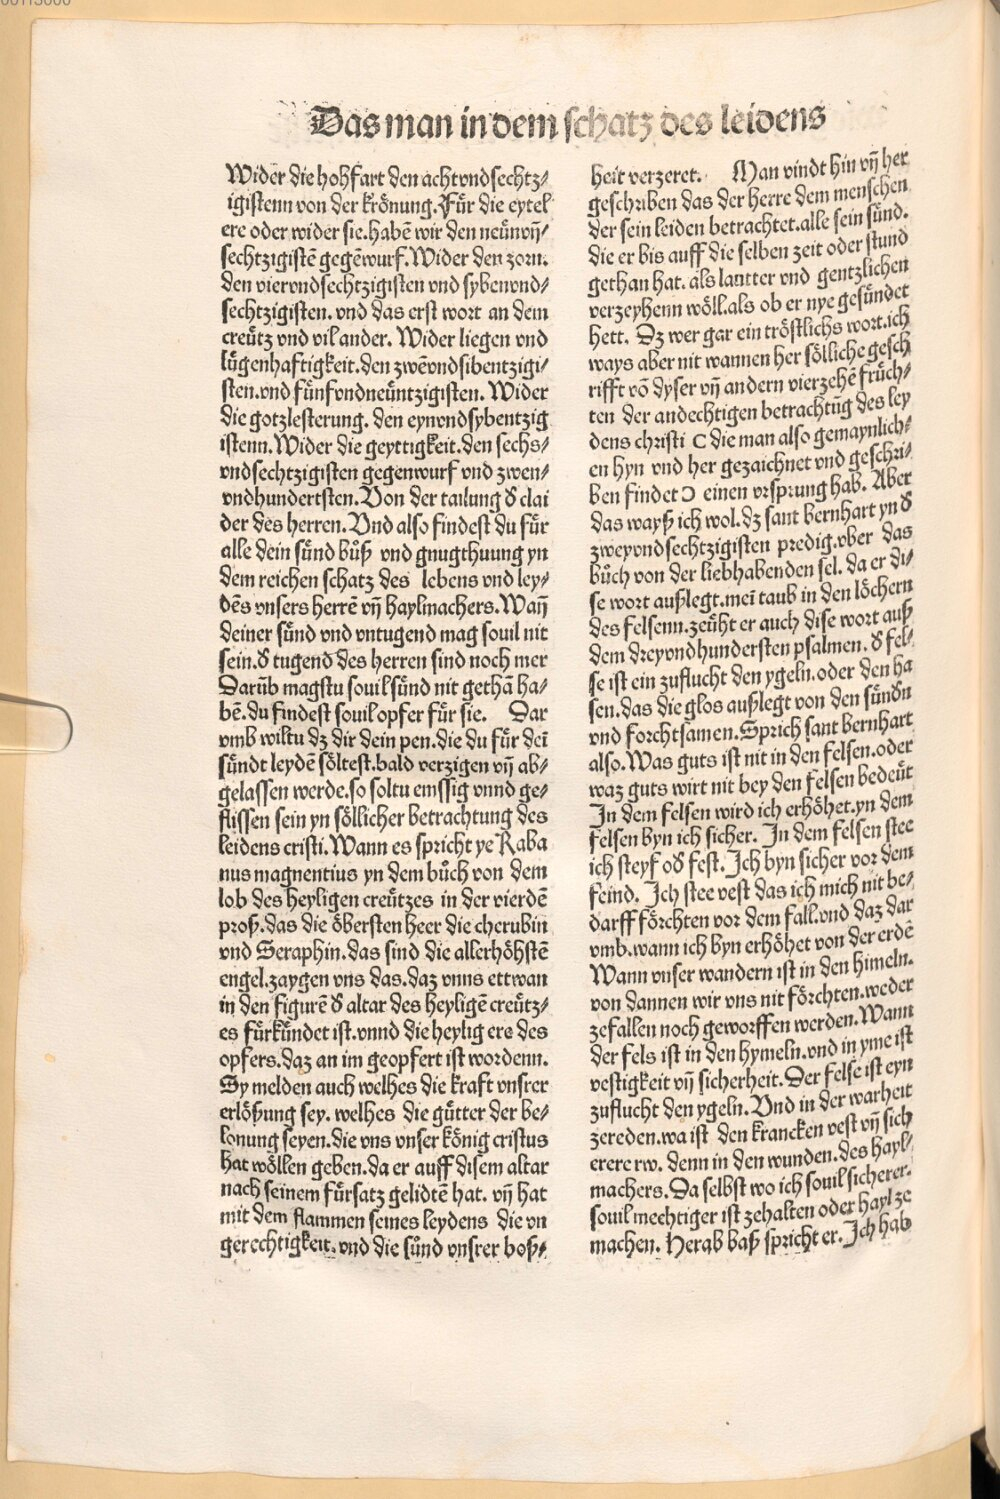 Das man in dem schatz des leidens
Wider die hohfart den achtvndsechtz⸗
igistenn von der krönung. Für die eytel
ere oder wider sie. habē wir den neünvn̄⸗
sechtzigistē gegēwurf. Wider den zorn.
den viervndsechtzigisten vnd sybenvnd⸗
sechtzigisten. vnd das erst wort an dem
creütz vnd vil ander. Wider liegen vnd
lügenhaftigkeit. den zwēvndsibentzigi⸗
sten. vnd fünfvndneüntzigisten. Wider
die gotzlesterung. den eynvndsybentzig
istenn. Wider die geyttigkeit. den sechs⸗
vndsechtzigisten gegenwurf vnd zwen⸗
vndhundertsten. Von der tailung d̕ clai
der des herren. Vnd also findest du für
alle dein sünd bůß vnd gnugthuung yn
dem reichen schatz des lebens vnd ley⸗
dēs vnsers herrē vn̄ haylmachers. Wan̄
deiner sünd vnd vntugend mag souil nit
sein. d̕ tugend des herren sind noch mer
Darūb magstu souil sünd nit gethā ha⸗
bē. du findest souil opfer für sie. Dar
vmb wiltu dz dir dein pen. die du für dei
sündt leydē söltest. bald verzigen vn̄ ab⸗
gelassen werde. so soltu emssig vnnd ge⸗
flissen sein yn söllicher betrachtung des
leidens cristi. Wann es spricht ye Raba
nus magnentius yn dem bůch von dem
lob des heyligen creützes in der vierdē
proß. das die öbersten heer die cherubin
vnd Seraphin. das sind die allerhöhstē
engel. zaygen vns das. daz vnns ettwan
in den figurē d̕ altar des heyligē creütz⸗
es fürkündet ist. vnnd die heylig ere des
opfers. daz an im geopfert ist wordenn.
Sy melden auch welhes die kraft vnsrer
erlößung sey. welhes die gütter der be⸗
lonung seyen. die vns vnser könig cristus
hat wöllen geben. da er auff disem altar
nach seinem fürsatz gelidtē hat. vn̄ hat
mit dem flammen seines leydens die vn
gerechtigkeit. vnd die sünd vnsrer boß⸗
heit verzeret. Man vindt hin vn̄ her
geschriben das der herre dem menschen
der sein leiden betrachtet. alle sein sünd.
die er bis auff die selben zeit oder stund
gethan hat. als lautter vnd gentzlichen
verzeyhenn wöll. als ob er nye gesündet
hett. Dz wer gar ein tröstlichs wort. ich
ways aber nit wannen her sölliche gesch
rifft vō dyser vn̄ andern vierzehē früch⸗
ten der andechtigen betrachtūg des ley
dens christi ( die man also gemaynlich⸗
en hyn vnd her gezaichnet vnd geschri⸗
ben findet ) einen vrsprung hab. Aber
das wayß ich wol. dz sant bernhart yn d̕
zweyvndsechtzigisten predig. vber das
bůch von der liebhabenden sel. da er di⸗
se wort außlegt. mei taub in den löchern
des felsenn. zeüht er auch dise wort auß
dem dreyvndhundersten psalmen. d̕ fel⸗
se ist ein zuflucht den ygeln. oder den ha
sen. das die glos außlegt von den sündn̄
vnd forchtsamen. Sprich sant bernhart
also. Was guts ist nit in den felsen. oder
waz guts wirt nit bey den felsen bedeüt
In dem felsen wird ich erhöhet. yn dem
felsen byn ich sicher. In dem felsen stee
ich steyf od̕ fest. Ich byn sicher vor dem
feind. Ich stee vest das ich mich nit be⸗
darff förchten vor dem fall. vnd daz dar
vmb. wann ich byn erhöhet von der erdē
Wann vnser wandern ist in den himeln.
von dannen wir vns nit förchten. weder
zefallen noch geworffen werden. Wann
der fels ist in den hymeln. vnd in yme ist
vestigkeit vn̄ sicherheit. Der felse ist eyn
zuflucht den ygeln. Vnd in der warheit
zereden. wa ist den krancken vest vn̄ sich
erere rw. denn in den wunden. des hayl⸗
machers. Da selbst wo ich souil sicherer.
souil mechtiger ist zehalten oder hayl ze
machen. Herab baß spricht er. Ich hab